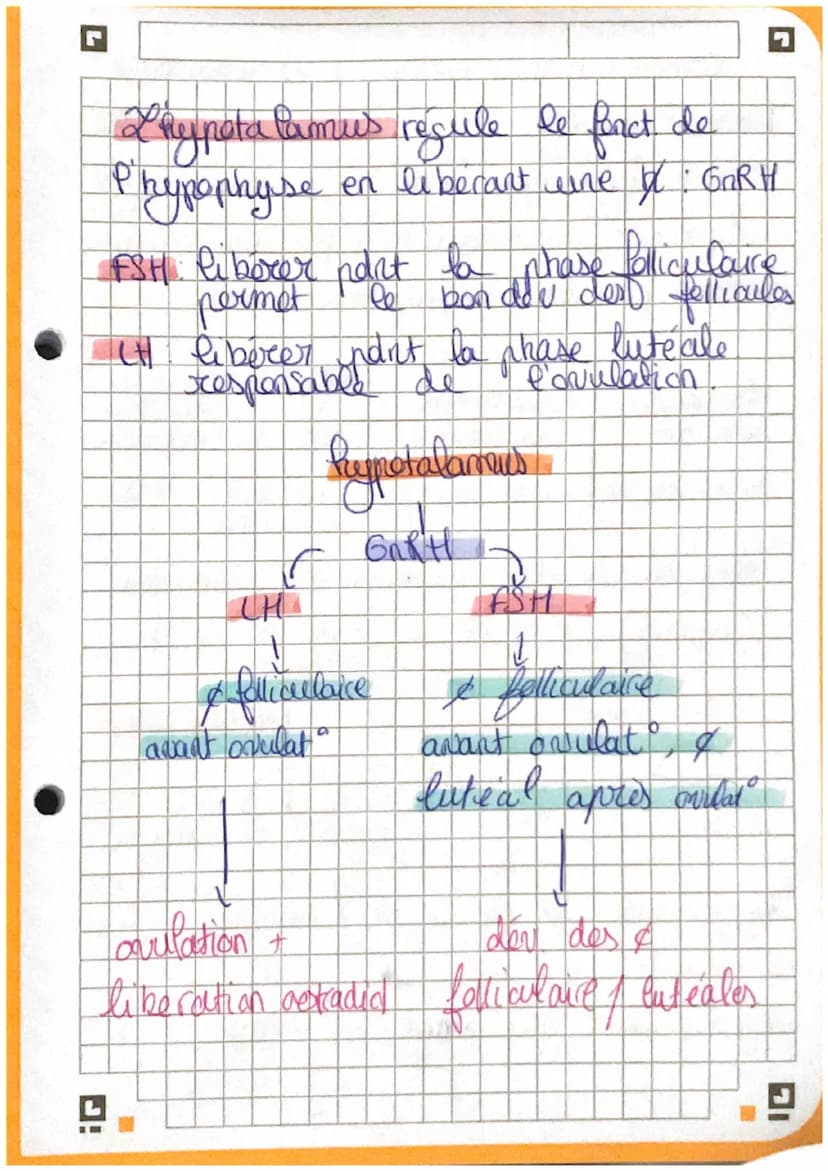 L'hypotalamus régule le fonct. de
l'hypophyse en libérant une : GnRH
FSH : libérer pdnt la phase folliculaire
permet le bon ddv des follicules
LH : libérer pdnt la phase lutéale
responsable de l'ovulation.
hypotalamus
GnRH
LH FSH
¢ folliculaire ¢ folliculaire
avant ovulat° avant ovulat°, ¢
lutéal après ovulat°
ovulation + dév. des ¢
libération oestradiol folliculaire / lutéales